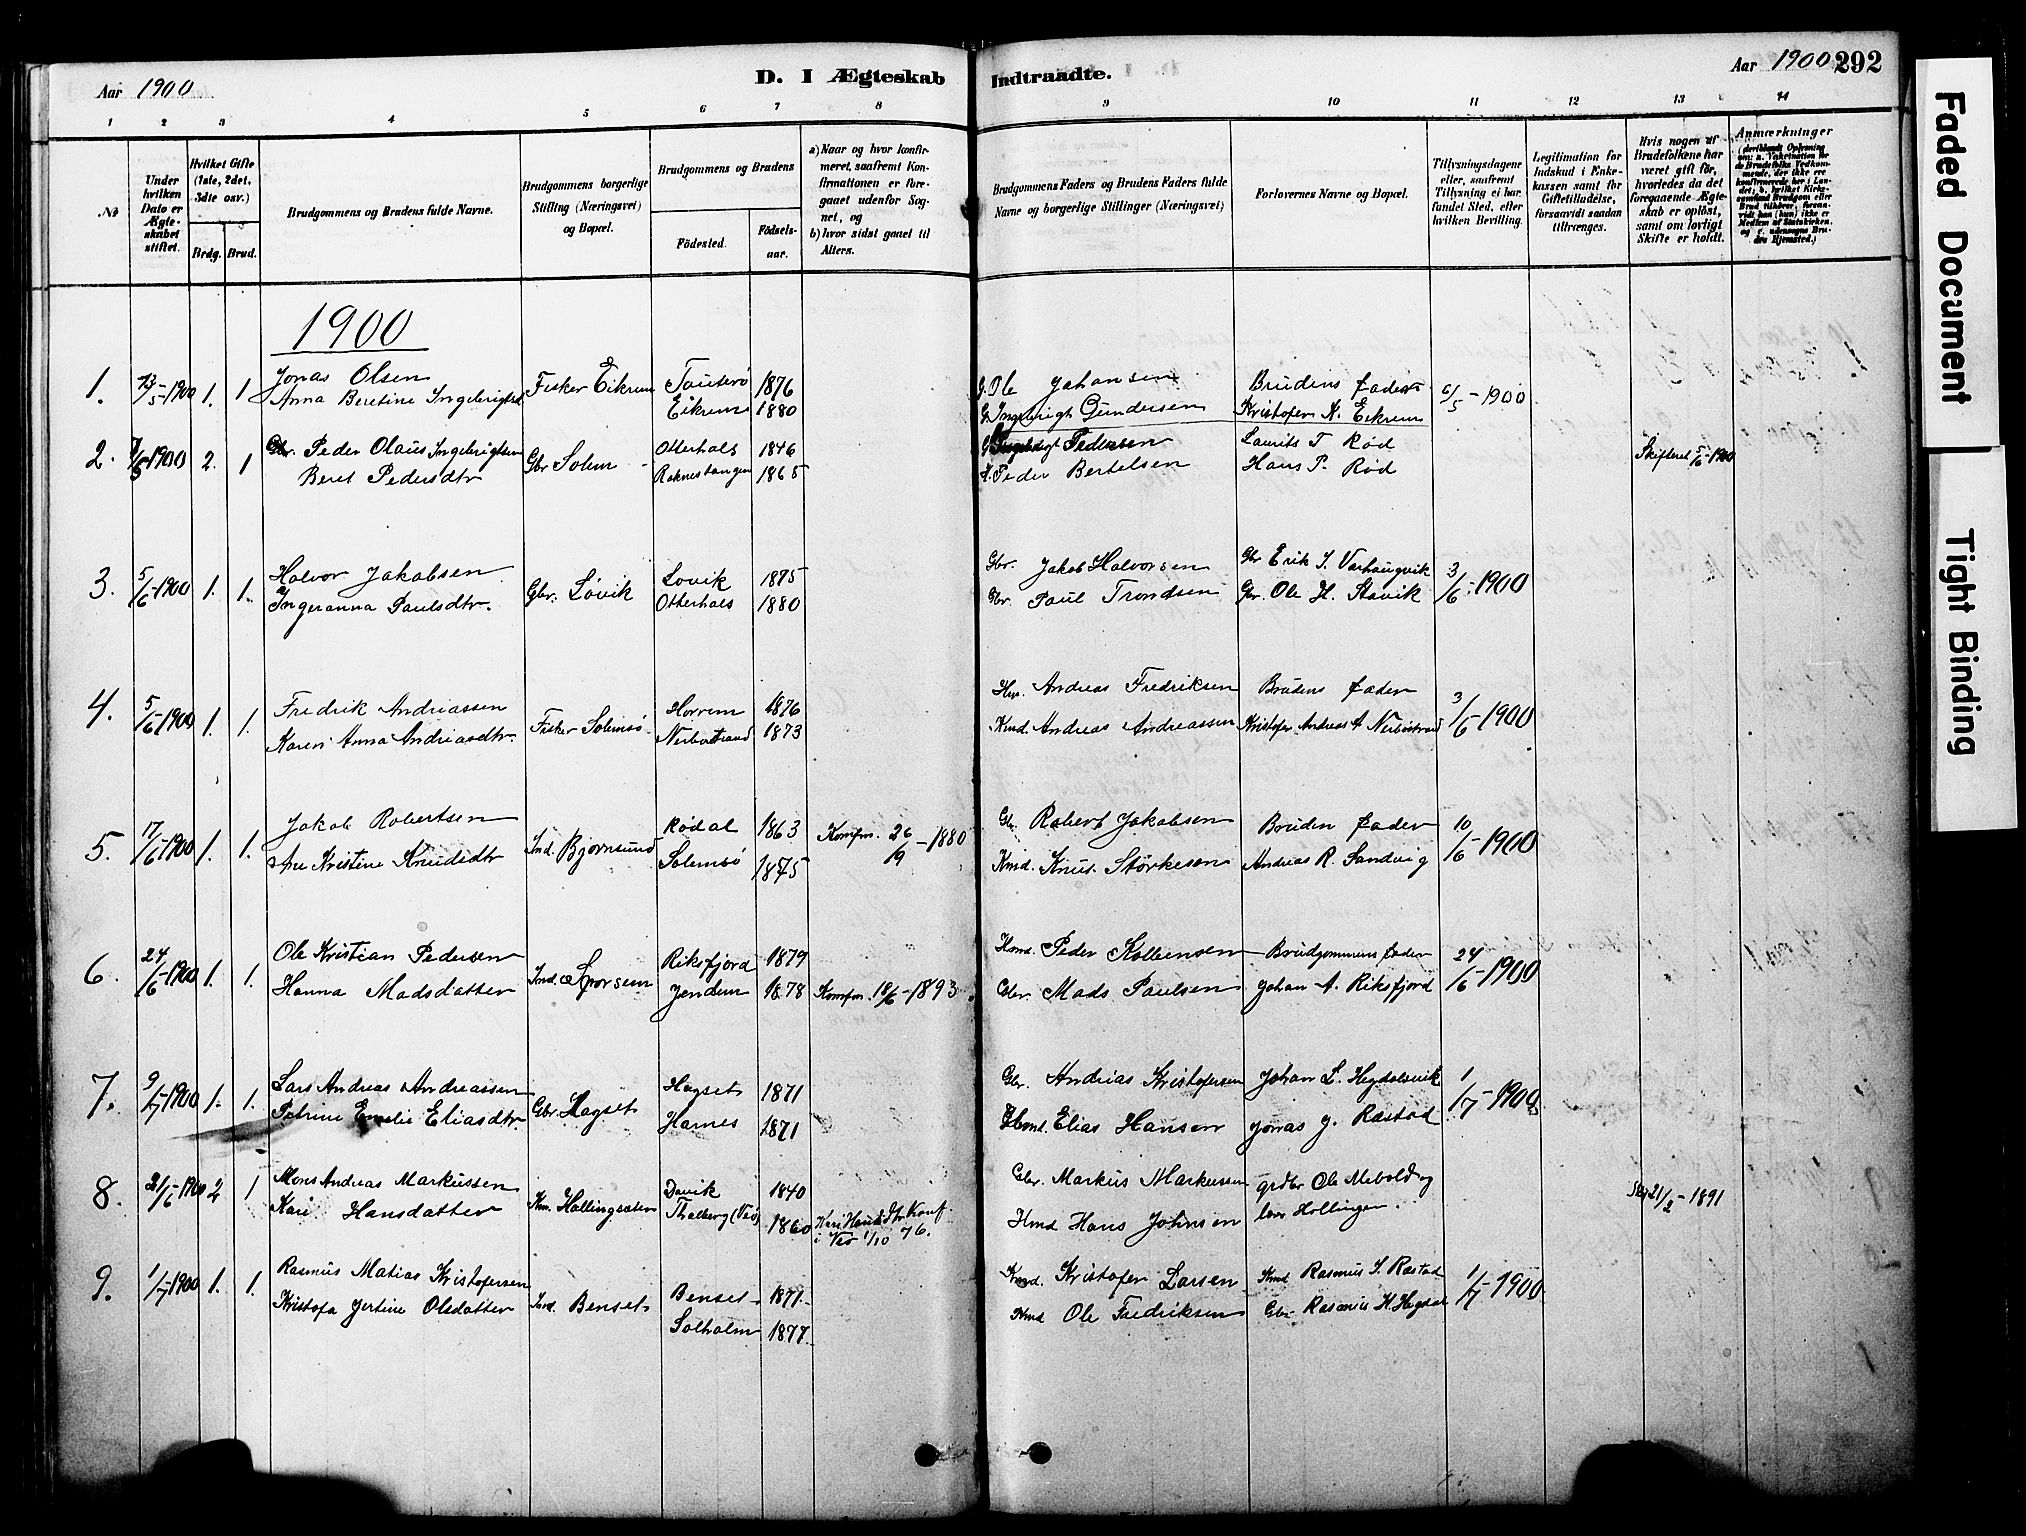 Aar 1900
D. I Ægteskab Indtraadte.
Aar 1900 292
1 2 3 4 5 6 7 8 9 10 11 12 13 14
No
Under hvilken Dato er Ægteskabet stiftet.
Hvilket Gifte (1ste, 2det, 3die osv.)
Brdg. Brud.
Brudgommens og Brudens fulde Navne.
Brudgommens borgerlige Stilling (Næringsvei) og Bopæl.
Brudgommens og Brudens
Födested.
Födselsaar.
a) Naar og hvor konfirmeret, saafremt Konfirmationen er foregaaet udenfor Sognet, og
b) hvor sidst gaaet til Alters.
Brudgommens Faders og Brudens Faders fulde Navne og borgerlige Stillinger (Næringsvei)
Forlovernes Navne og Bopæl.
Tillysningsdagene eller, saafremt Tillysning ei har fundet Sted, efter hvilken Bevilling.
Legitimation for Indskud i Enkekassen samt for Giftetilladelse, forsaavidt saadan tiltrænges.
Hvis nogen af Brudefolkene har været gift för, hvorledes da det foregaaende Ægteskab er oplöst, samt om lovligt Skifte er holdt.
Anmærkninger
1900
1. 13/5-1900 1. 1 Jonas Olsen Fisker Eikrem Tauterö 1876 G. Ole Johansen Brudens fader 6/5-1900
Anna Beretine Ingebrigtsd Eikrem 1880 G. Ingebrigt Gundersen Kristofer A. Eikrem
2. 7/5-1900 2. 1 Gbr. Peder Olaus Ingebrigtsen Gbr Solem Otterhals 1846 Pedersen Laurits T Rød Skifteret 5/6-1900
Beret Pedersdtr Raknestangen 1865 Peder Bertelsen Hans P. Rød
3. 5/6-1900 1. 1. Halvor Jakobsen Gbr. Løvik Lovik 1875 Gbr. Jakob Halvorsen Gbr Erik S. Varhaugvik 3/6-1900
Ingeranna Paulsdtr. Otterhals 1880 Gbr. Paul Trondsen Gbr. Ole H. Stavik
4. 5/6-1900 1. 1. Fredrik Andreassen Fisker Solemsö Horrem 1876 Hm. Andreas Fredriksen Brudens fader 3/6-1900
Karen Anna Andreasdtr. Nerbostrand 1873 Kmd. Andreas Andreassen Kristofer Andreas A Nerböstrand
5. 17/6-1900 1. 1. Jakob Robertsen Ind. Bjornsund Rødal 1863 Konfm. 26/9-1880 Gbr. Robert Jakobsen Bruden fader 10/6-1900
Ane Kristine Knudsdtr Solemsö 1875 Kmd. Knut Störkesen Andreas R. Sandvig
6. 24/6-1900 1. 1. Ole Kristian Pedersen Ind. Sporsem Riksfjord 1879 Hmd Peder Kolbensen Brudgommens fader 24/6-1900
Hanna Madsdatter Jendem 1878 Konfm. 18/6-1893. Gbr. Mads Paulsen Johan A. Riksfjord
7. 9/7-1900 1. 1. Lars Andreas Andreassen Gbr. Hagset Hagset 1871 Gbr. Andreas Kristofersen Johan L. Hegdalsvik 1/7-1900
Petrine Emelie Eliasdtr. Harnes 1871 Hmd. Elias Hansen Jonas J. Rastad
8. 21/6-1900 2 1 Mons Andreas Markussen Km. Hollingsæter Davik 1840 Gbr. Markus Markussen grdbr Ole Mebold og 21/2-1891
Kari Hansdatter Thalberg (Veö) 1860 Kari Hansdtr Konf. i Veö 1/10 76. Kmd Hans Johnsen lens Hollingen.
9. 1/7-1900 1. 1. Rasmus Matias Kristofersen Ind. Benset Benset 1871. Kmd. Kristofer Larsen Kmd Rasmus S. Rastad 1/7-1900
Kristofa Jertine Olsdatter Solholm 1877. Kmd Ole Fredriksen Gbr Rasmus K Hegdal
Faded Document
Tight Binding